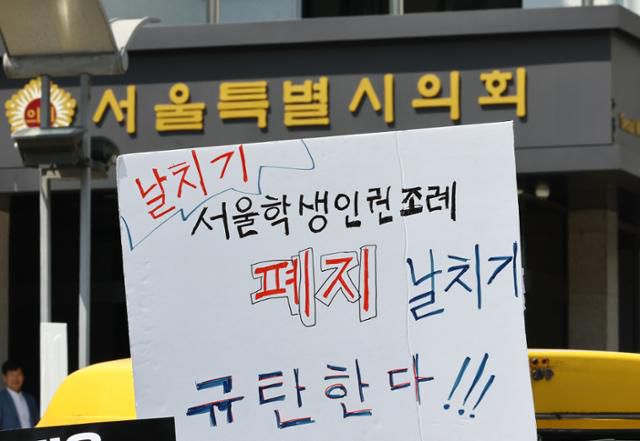 서울특별시의회
날치기
서울학생인권조례
폐지 날치기
규탄한다!!!